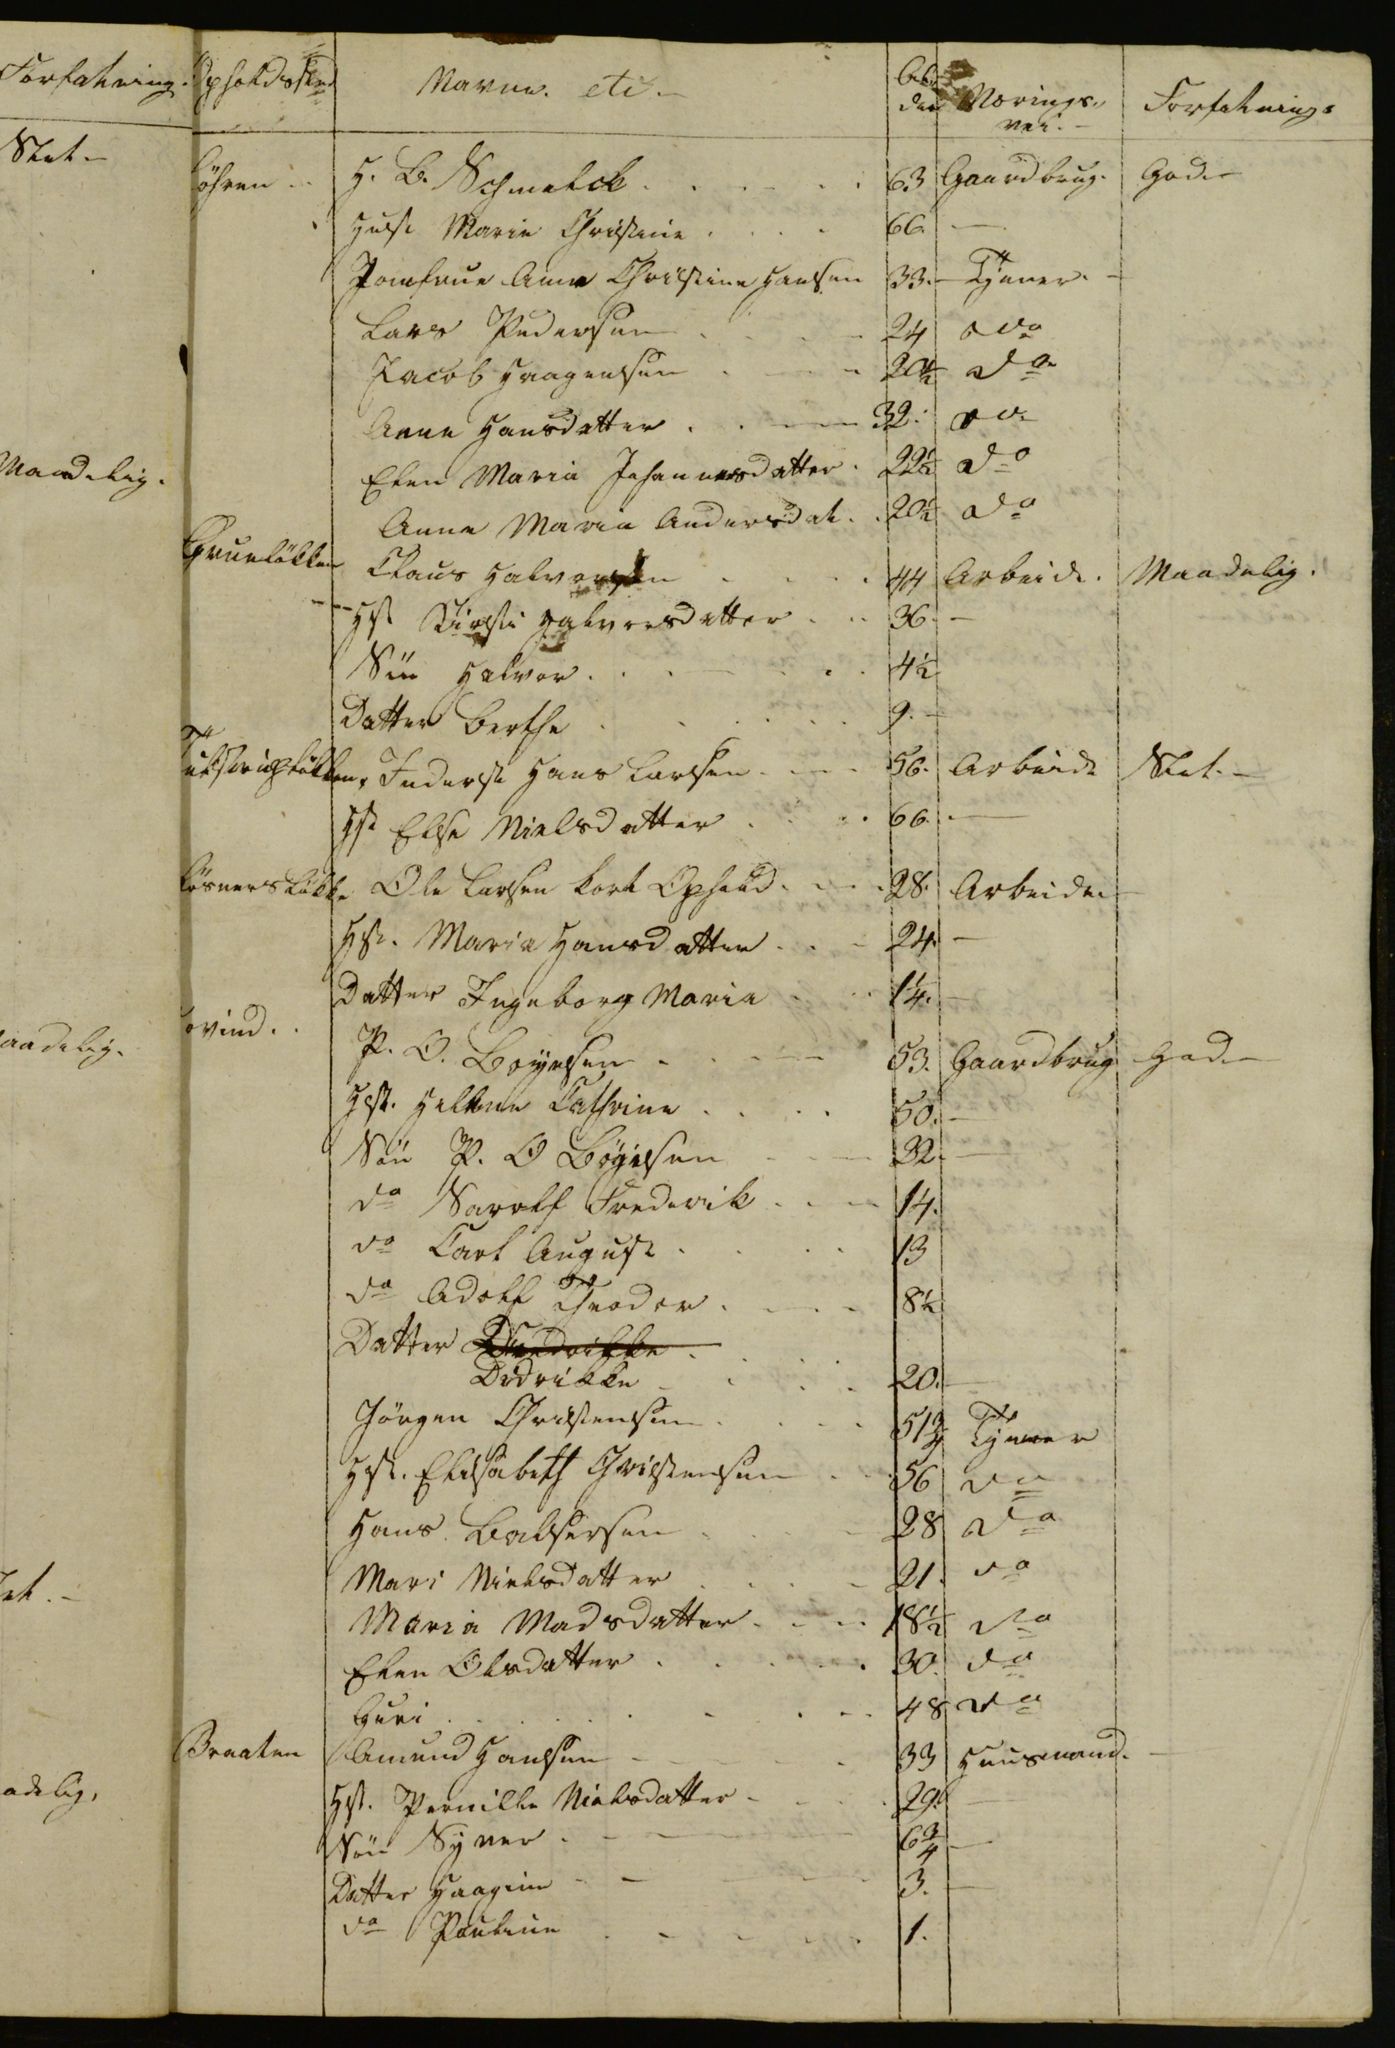 Forfatning. Opholdssted Navne. etc. Al- Nærings- Forfatning.
der vei.
Slet.
Løhren H. B. Schmelck 63 Gaardbrug. God.
Hust Marie Christine 66. —
Jomfrue Anne Christine Hansen 33. Tjener.
Lars Pedersen 24 do
Jacob Haagensen 20½ do
Anne Hansdatter 32. do
Maadelig.
Elen Maria Johannesdatter 22½ do
Anne Maria Andersdat. 20½ do
Grueløkken Claus Halvorsen 44 Arbeide. Maadelig.
Hst Kirsti Halvorsdatter 36. —
Sön Halvor 4½
Datter Berthe 9.
Inderst Hans Larsen 56. Arbeide Slet.
Hst Else Nielsdatter 66. —
Ole Larsen kort Ophold 28. Arbeide.
Hst. Maria Hansdatter 24. —
Datter Ingeborg Maria 1¼. —
aadelig. ovind.
P. O. Boyesen 53. Gaardbrug God.
Hst. Hellene Cathrine 50. —
Sön P. O Böyesen 32. —
do Sarolf Frederik 14.
do Carl August 13
do Adolf Theodor 8½
Datter
Didrikke 20. —
Jörgen Christensen 51¾ Tjener
Hst. Elisabeth Christensen 56 do
Hans Baltsersen 28 do
Mari Nielsdatter 21. do
Maria Madsdatter 18½ do
Elen Olsdatter 30. do
Guri 48 do
Braaten Amund Hansen 33 Huusmand.
adelig. Hst. Pernille Nielsdatter 29. —
Sön Syver 6¾ —
Datter Haagine 3. —
do Pauline 1.